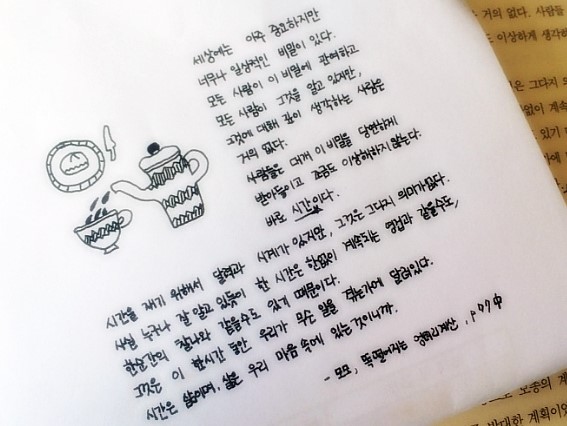 세상에는 아주 중요하지만
너무나 일상적인 비밀이 있다.
모든 사람이 이 비밀에 관여하고
모든 사람이 그것을 알고 있지만,
그것에 대해 깊이 생각하는 사람은
거의 없다.
사람들은 대개 이 비밀을 당연하게
받아들이고 조금도 이상해하지 않는다.
바로 시간이다.
시간을 재기 위해서 달력과 시계가 있지만, 그것은 그다지 의미가 없다.
사실 누구나 잘 알고 있듯이 한 시간은 한없이 계속되는 영겁과 같을수도,
한순간의 찰나와 같을수도 있기 때문이다.
그것은 이 한시간 동안 우리가 무슨 일을 겪는가에 달려있다.
시간은 삶이며, 삶은 우리 마음 속에 있는 것이니까.
- 모모, 똑 떨어지는 엉터리 계산, p 77 中
거의 없다. 사람들
도 이상하게 생각하
은 그다지 의
없이 계속
있기